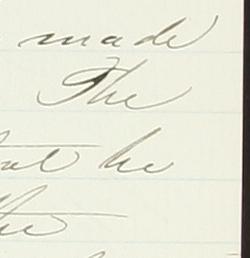 made
The
he
the